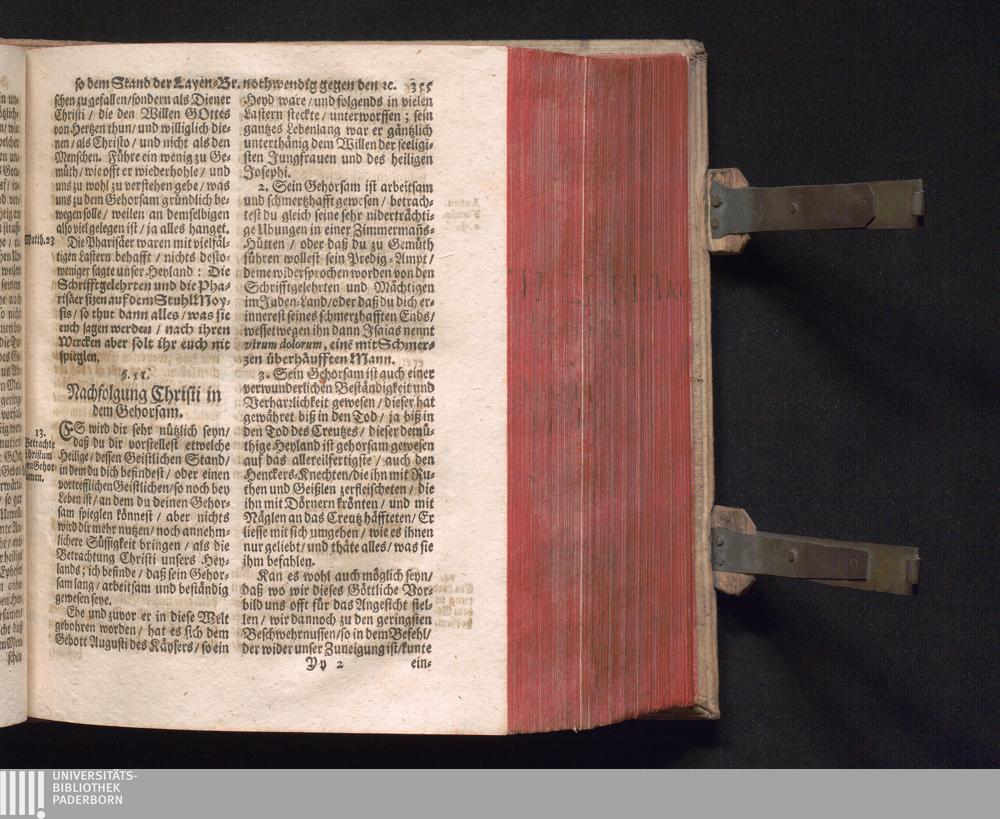 so dem Stand der Layen-Br. nothwendig gegen den ꝛc. 355
schen zu gefallen / sondern als Diener
Christi / die den Willen GOttes
von Hertzen thun / und williglich die-
nen / als Christo / und nicht als den
Menschen. Führe ein wenig zu Ge-
müth / wie offt er wiederhohle / und
uns zu wohl zu verstehen gebe / was
uns zu dem Gehorsam gründlich be-
wegen solle / weilen an demselbigen
also viel gelegen ist / ja alles hanget.
Matth. 23
Die Pharisäer waren mit vielfäl-
tigen Lastern behafft / nichts desto-
weniger sagte unser Heyland : Die
Schrifftgelehrten und die Pha-
risäer sizen auf dem Stuhl Moy-
sis / so thut dann alles / was sie
euch sagen werden / nach ihren
Wercken aber solt ihr euch nit
spieglen.
§. II.
Nachfolgung Christi in
dem Gehorsam.
13.
Betrachte
Christum
im Gehor-
samen.
ES wird dir sehr nützlich seyn /
daß du dir vorstellest etwelche
Heilige / dessen Geistlichen Stand /
in dem du dich befindest / oder einen
vortrefflichen Geistlichen / so noch bey
Leben ist / an dem du deinen Gehor-
sam spieglen könnest / aber nichts
wird dir mehr nutzen / noch annehm-
lichere Süssigkeit bringen / als die
Betrachtung Christi unsers Hey-
lands ; ich befinde / daß sein Gehor-
sam lang / arbeitsam und beständig
gewesen seye.
Ehe und zuvor er in diese Welt
gebohren worden / hat es sich dem
Gebott Augusti des Käysers / so ein
Heyd ware / und folgends in vielen
Lastern steckte / unterworffen ; sein
gantzes Lebenlang war er gäntzlich
unterthänig dem Willen der seeligi-
sten Jungfrauen und des heiligen
Josephi.
2. Sein Gehorsam ist arbeitsam
und schmertzhafft gewesen / betrach-
test du gleich seine sehr niderträchti-
ge Ubungen in einer Zimmermañs-
Hütten / oder daß du zu Gemüth
führen wollest sein Predig-Ampt /
deme widersprochen worden von den
Schrifftgelehrten und Mächtigen
im Juden-Land / oder daß du dich er-
innerest seines schmerzhafften Ends /
wessetwegen ihn dann Isaias nennt
virum dolorum, eine mit Schmer-
zen überhäufften Mann.
3. Sein Gehorsam ist auch einer
verwunderlichen Beständigkeit und
Verharzlichkeit gewesen / dieser hat
gewähret biß in den Tod / ja biß in
den Tod des Creutzes / dieser demü-
thige Heyland ist gehorsam gewesen
auf das allereilfertigste / auch den
Henckers-Knechten / die ihn mit Ru-
then und Geißlen zerfleischeten / die
ihn mit Dörnern krönten / und mit
Näglen an das Creutz häffteten / Er
liesse mit sich umgehen / wie es ihnen
nur geliebt / und thäte alles / was sie
ihm befahlen.
Kan es wohl auch möglich seyn /
daß wo wir dieses Göttliche Vor-
bild uns offt für das Angesicht stel-
len / wir dannoch zu den geringsten
Beschwehrnussen / so in dem Befehl /
der wider unser Zuneigung ist / kunte
Yy 2
ein-
UNIVERSITÄTS-
BIBLIOTHEK
PADERBORN